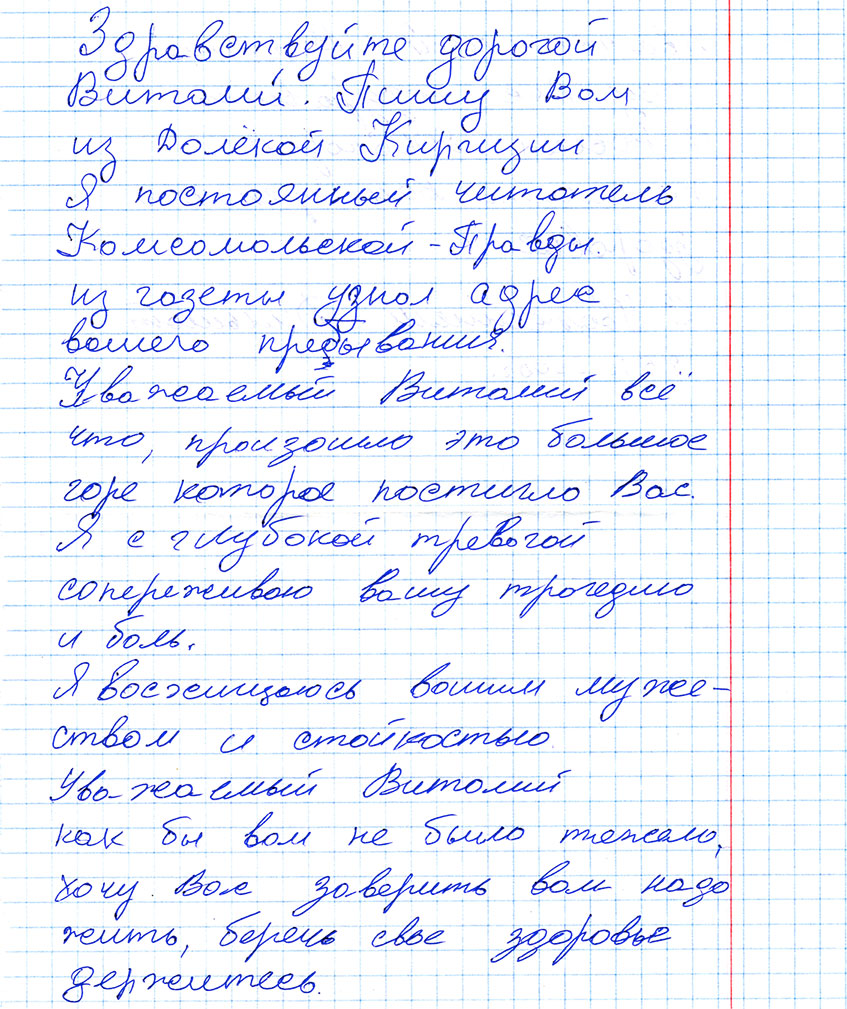 Здравствуйте дорогой
Виталий. Пишу Вам
из Далёкой Киргизии
Я постоянный читатель
Комсомольской-Правды.
из газеты узнал адрес
вашего пребывания.
Уважаемый Виталий всё
что, произошло это большое
горе которое постигло Вас.
Я с глубокой тревогой
сопереживаю вашу трагедию
и боль.
Я восхищаюсь вашим муже-
ством и стойкостью
Уважаемый Виталий
как бы вам не было тяжело,
хочу Вас заверить вам надо
жить, беречь свое здоровье
держитесь.